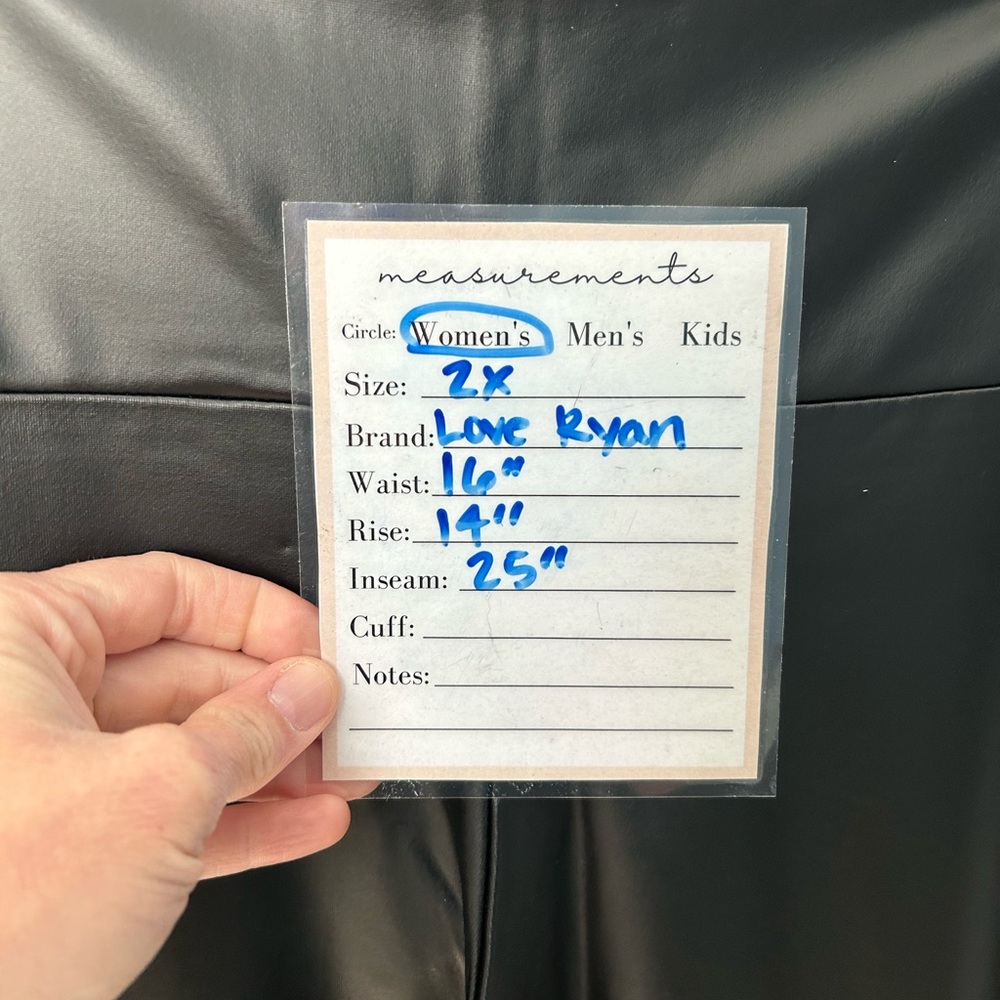 measurements
Circle: Women's Men's Kids
Size: 2X
Brand: Love Ryan
Waist: 16"
Rise: 14"
Inseam: 25"
Cuff:
Notes: